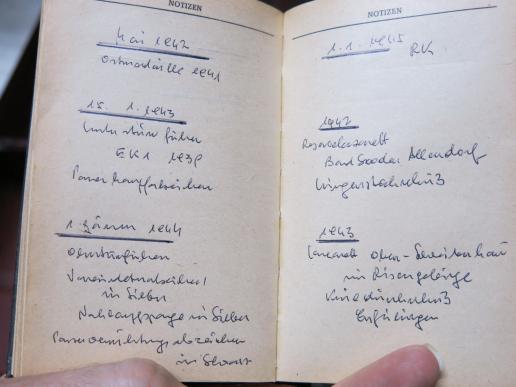 NOTIZEN
Mai 1942
Ostmedaille 1941
15. 1. 1943
Untersturmführer
EK1 1939
Panzerkampfabzeichen
1. Jänner 1944
Obersturmführer
Verwundetenabzeichen
in Silber
Nahkampfspange in Silber
Panzervernichtungsabzeichen
in
NOTIZEN
1. 1. 1945 RK
1942
Reservelazarett
Bad Sooden Allendorf
1943
Lazarett Ober-Schreiberhau
im Riesengebirge
Kniedurchschuß